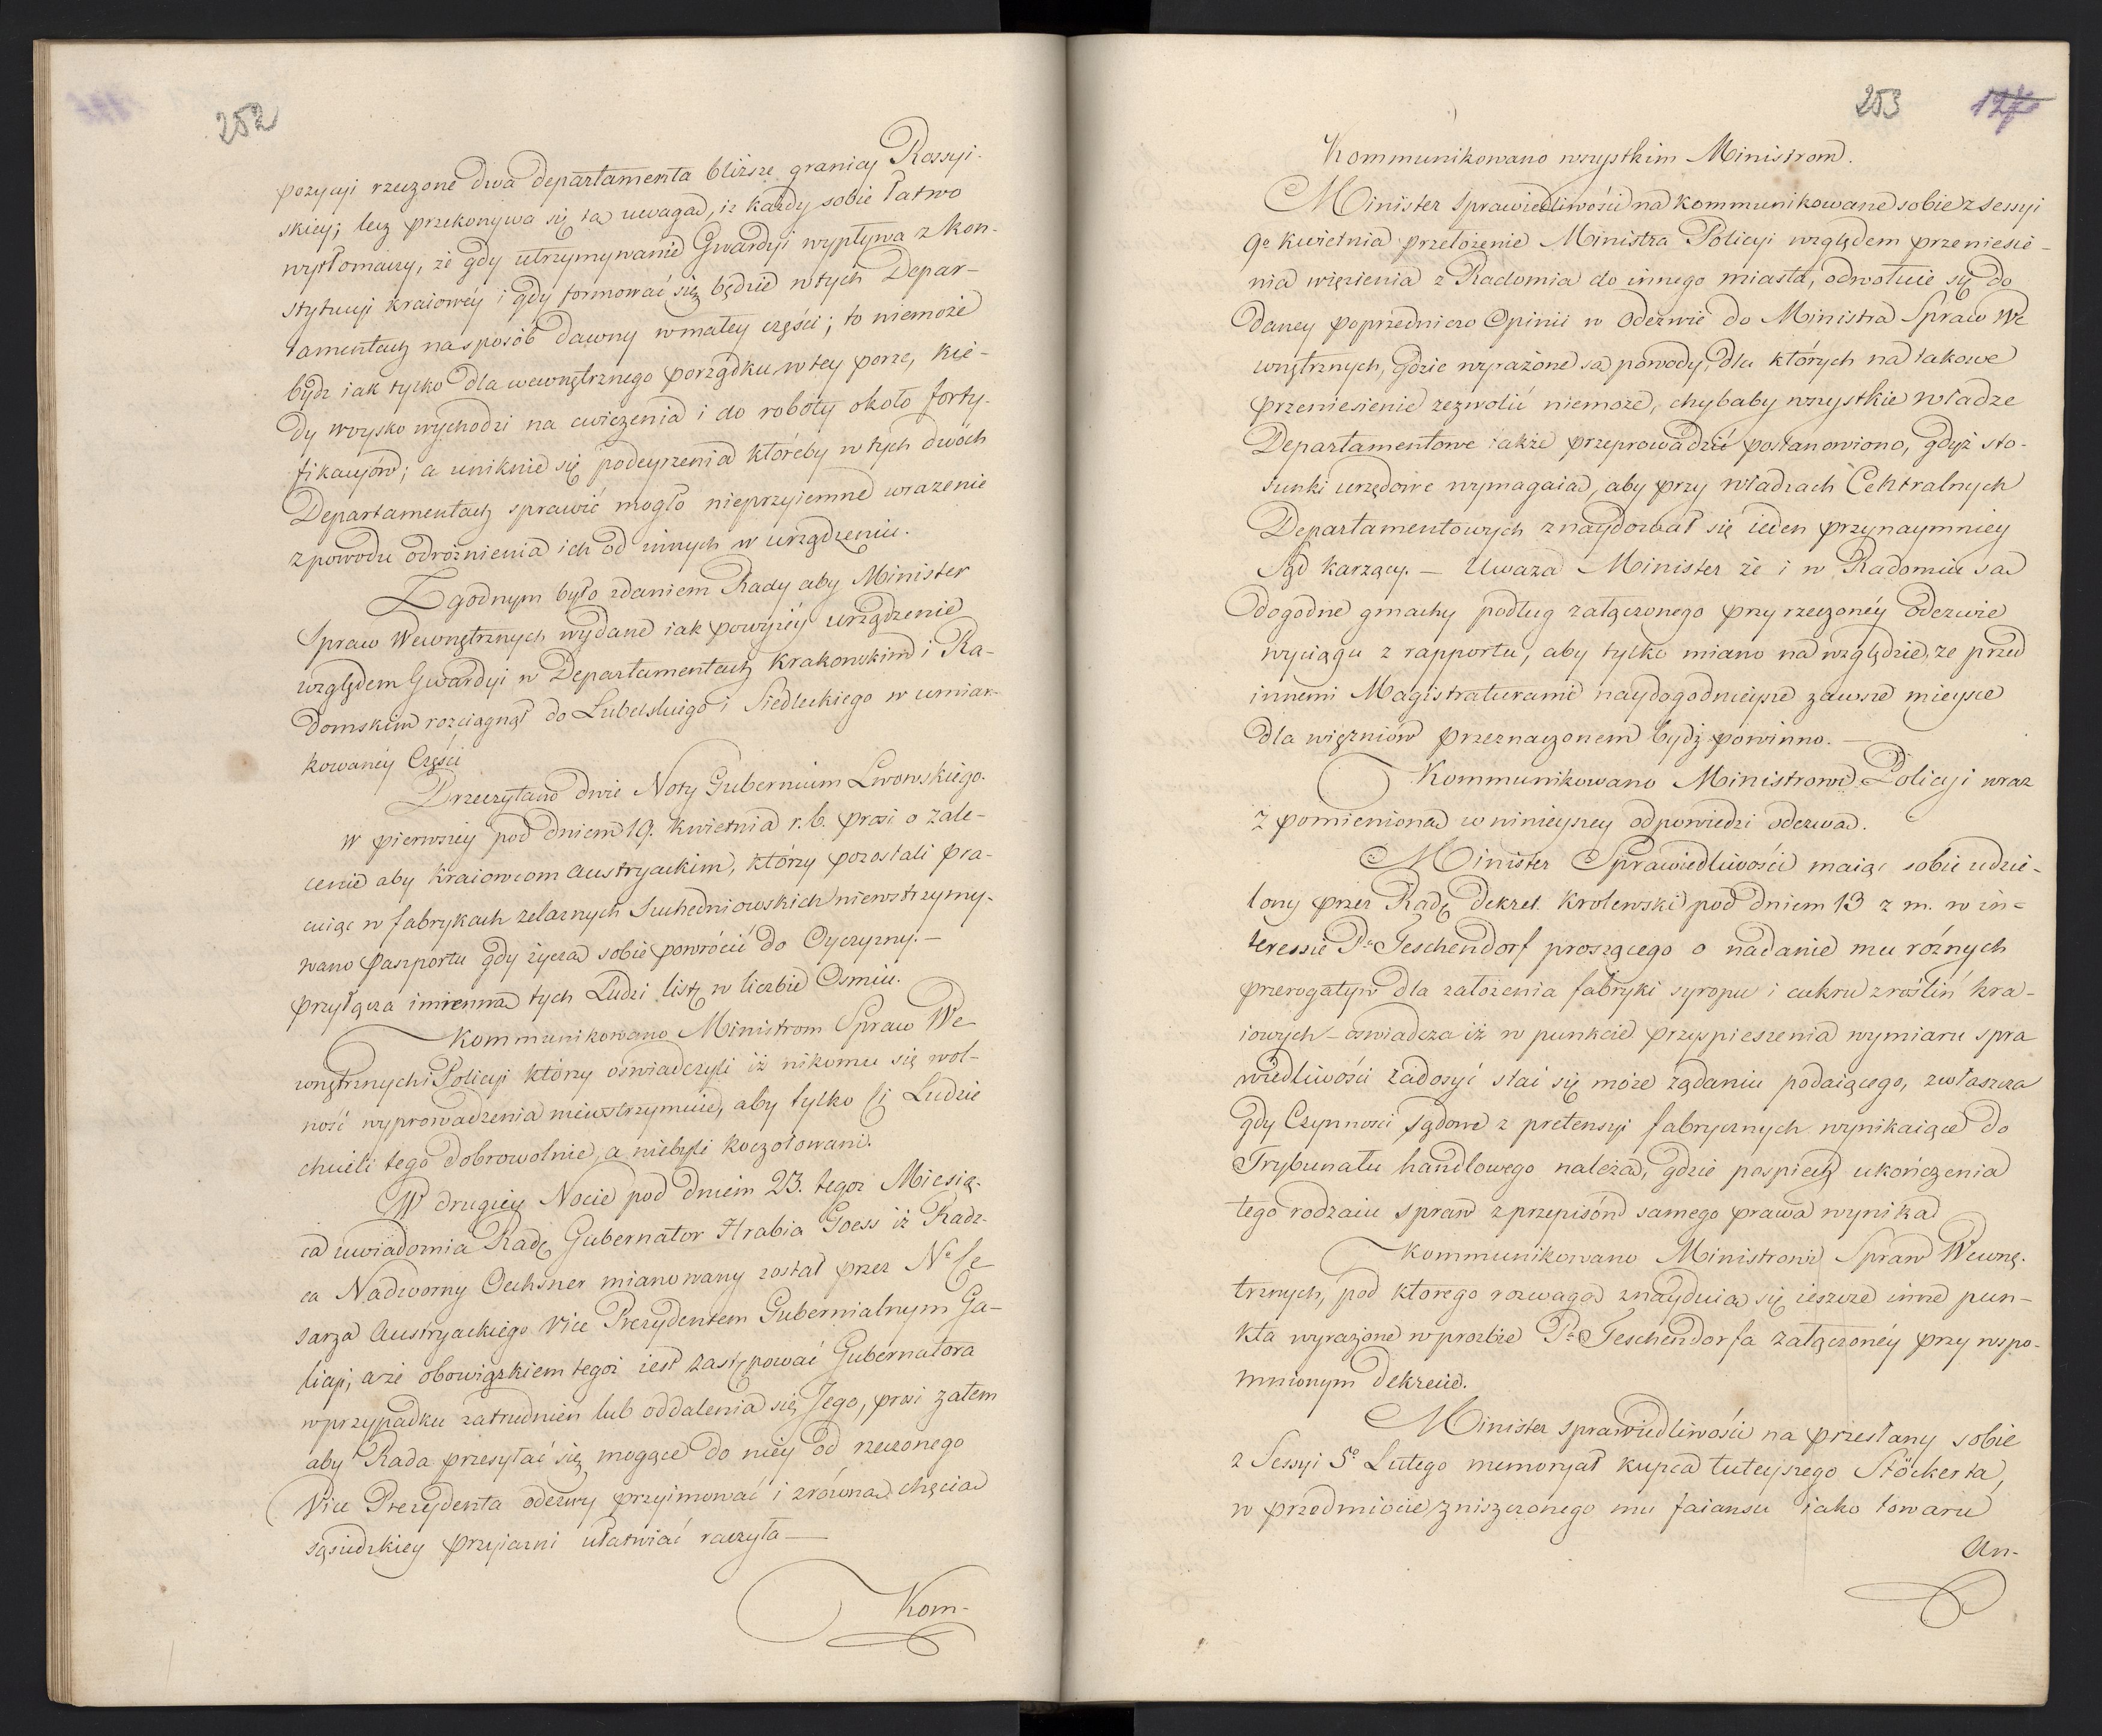 252
pozycyi rzeczone dwa departamenta bliższe granicy Rossyi-
skiey; lecz przekonywa się tą uwagą, iż każdy sobie łatwo
wytłomaczy, że gdy utrzymywanie Gwardyi wypływa z kon-
stytucyi kraiowéy i gdy formować się będzie w tych Depar-
tamentach na sposób dawny w małey części; to niemoże
bydź iak tylko dla wewnętrznego porządku w tey porze, kie-
dy woysko wychodzi na cwiczenia i do roboty około forty-
fikacyów; a uniknie się podeyrzenia któreby w tych dwóch
Departamentach sprawić mogło nieprzyiemne wrazenie
z powodu odrożnienia ich od innych w urządzeniu.
Zgodnym było zdaniem Rady aby Minister
Spraw Wewnętrznych wydane iak powyżéy urządzenie
względem Gwardyi w Departamentach Krakowskim i Ra-
domskim rozciągnął do Lubelskiego i Siedleckiego w umiar-
kowanéy Części
Przeczytano dwie Noty Gubernium Lwowskiego.
W pierwszéy pod dniem 19. Kwietnia r. b. prosi o zale-
cenie aby Kraiowcom Austryackim, którzy pozostali pra-
cuiąc w fabrykach żelaznych Suchedniowskich niewstrzymy-
wano Paszportu gdy życzą sobie powrócić do Oyczyzny. —
przyłącza imienną tych Ludzi listę w liczbie Osmiu.
Kommunikowano Ministrom Spraw We
wnętrznych i Policyi którzy oświadczyli iż nikomu się wol-
ność wyprowadzenia niewstrzymuie, aby tylko Ci Ludzie
chcieli tego dobrowolnie, a niebyli koczołowani.
W drugiéy Nocie pod dniem 23. tegoż Miesią-
ca uwiadomia Radę Gubernator Hrabia Goess iż Radz-
ca Nadworny Oechsner mianowany został przez Nº Ce
sarza Austryackiego Vice Prezydentem Gubernialnym Ga-
licyi, a że obowiązkiem tegoż iest zastępować Gubernatora
w przypadku zatrudnień lub oddalenia się Jego, prosi zatem
aby Rada przesyłać się mogące do niéy od rzeczonego
Vice Prezydenta odezwy przyimować i z równą chęcią
sąsiedzkiey przyiaźni ułatwiać raczyła —
Kom-
253 127
Kommunikowano wszystkim Ministrom.
Minister Sprawiedliwości na kommunikowane sobie z Sessyi
9º Kwietnia przełożenie Ministra Policyi względem przeniesie-
nia więzienia z Radomia do innego miasta, odwołuie się do
daney poprzedniczo Opinii w Odezwie do Ministra Spraw We
wnętrznych, gdzie wyrażone są powody, dla których na takowe
przeniesienie zezwolić niemoże, chybaby wszystkie władze
Departamentowe także przeprowadzić postanowiono, gdyż sto-
sunki urzędowe wymagaią, aby przy władzach Centralnych
Departamentowych znaydował się ieden przynaymniey
Sąd karzący. — Uważa Minister że i w Radomiu są
dogodne gmachy podług załączonego przy rzeczonéy Odezwie
wyciągu z rapportu, aby tylko miano na względzie, że przed
innemi Magistraturami naydogodnieysze zawsze mieysce
dla więzniów przeznaczonem bydź powinno. —
Kommunikowano Ministrowi Policyi wraz
z pomienioną w ninieyszey odpowiedzi odezwą.
Minister Sprawiedliwości maiąc sobie udzie-
lony przez Radę Dekret Krolewski pod dniem 13 z. m. w in-
teressie Pª Teschendorf proszącego o nadanie mu różnych
prerogatyw dla założenia fabryki syropu i cukru z roślin kra-
iowych — oświadcza iż w punkcie przyspieszenia wymiaru spra
wiedliwości zadosyć stać się może żądaniu podaiącego, zwłaszcza
gdy Czynności sądowe z pretensyi fabrycznych wynikaiące do
Trybunału handlowego należą, gdzie pospiech ukończenia
tego rodzaiu spraw z przepisów samego prawa wynika
Kommunikowano Ministrowi Spraw Wewnę-
trznych, pod ktorego rozwagą znayduią się ieszcze inne pun-
kta wyrażone w prośbie Pª Teschendorfa załączonéy przy wspo-
mnionym dekrecie.
Minister sprawiedliwości na przesłany sobie
z Sessyi 5º Lutego memoryał kupca tuteyszego Stöckerta,
w przedmiocie zniszczonego mu faiansu iako towaru
An-